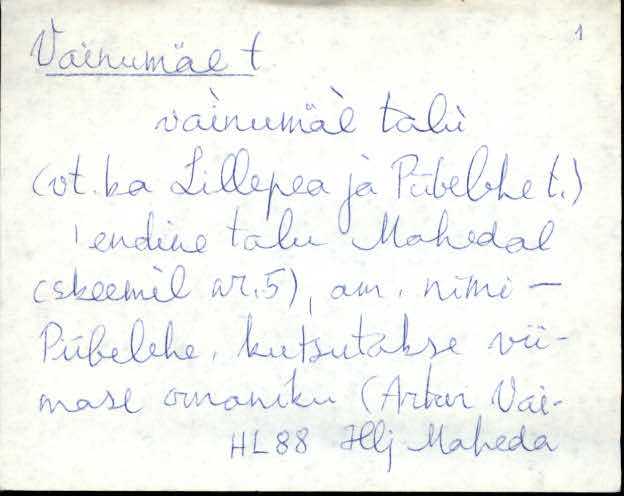 1
Vainumäe t
vàinumäè talù
(vt. ka Lillepea ja Piibelehe t.)
endine talu Mahedal
(skeemil nr. 5), am. nimi –
Piibelehe, kutsutakse vii-
mase omaniku (Arturi Vai-
HL88 Hlj Maheda